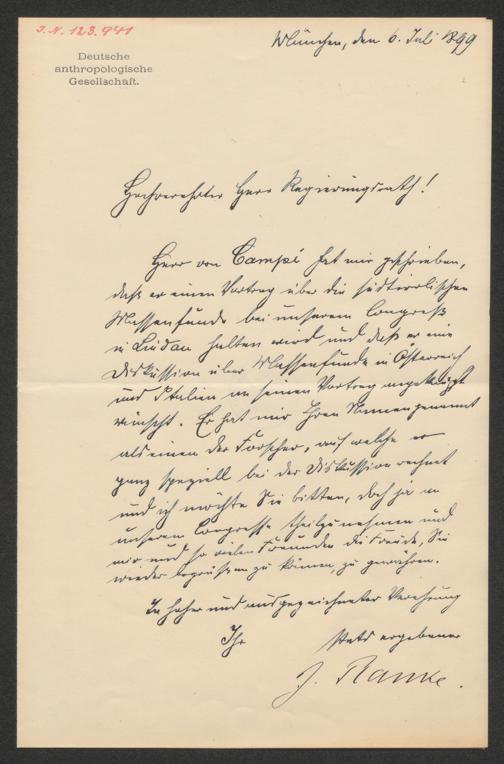 J. N. 123.941
München, den 6. Juli 1899
Deutsche
anthropologische
Gesellschaft.
Hochverehrter Herr Regierungsrath!
Herr von Campi hat mir geschrieben,
daß er einen Vortrag über die südtirolischen
Massenfunde bei unserem Congreß
in Lindau halten wird und daß er eine
Diskussion über Massenfunde in Österreich
und Italien an seinen Vortrag angeknüpft
wünscht. Er hat mir Ihren Namen genannt
als einen der Forscher, auf welche er
ganz speziell bei der Diskussion rechnet
und ich möchte Sie bitten, doch ja an
unserem Congresse theilzunehmen und
mir und so vielen Freunden die Freude, Sie
wieder begrüßen zu können, zu gewähren.
In hoher und ausgezeichneter Verehrung
Ihr stets ergebener
J. Ranke.